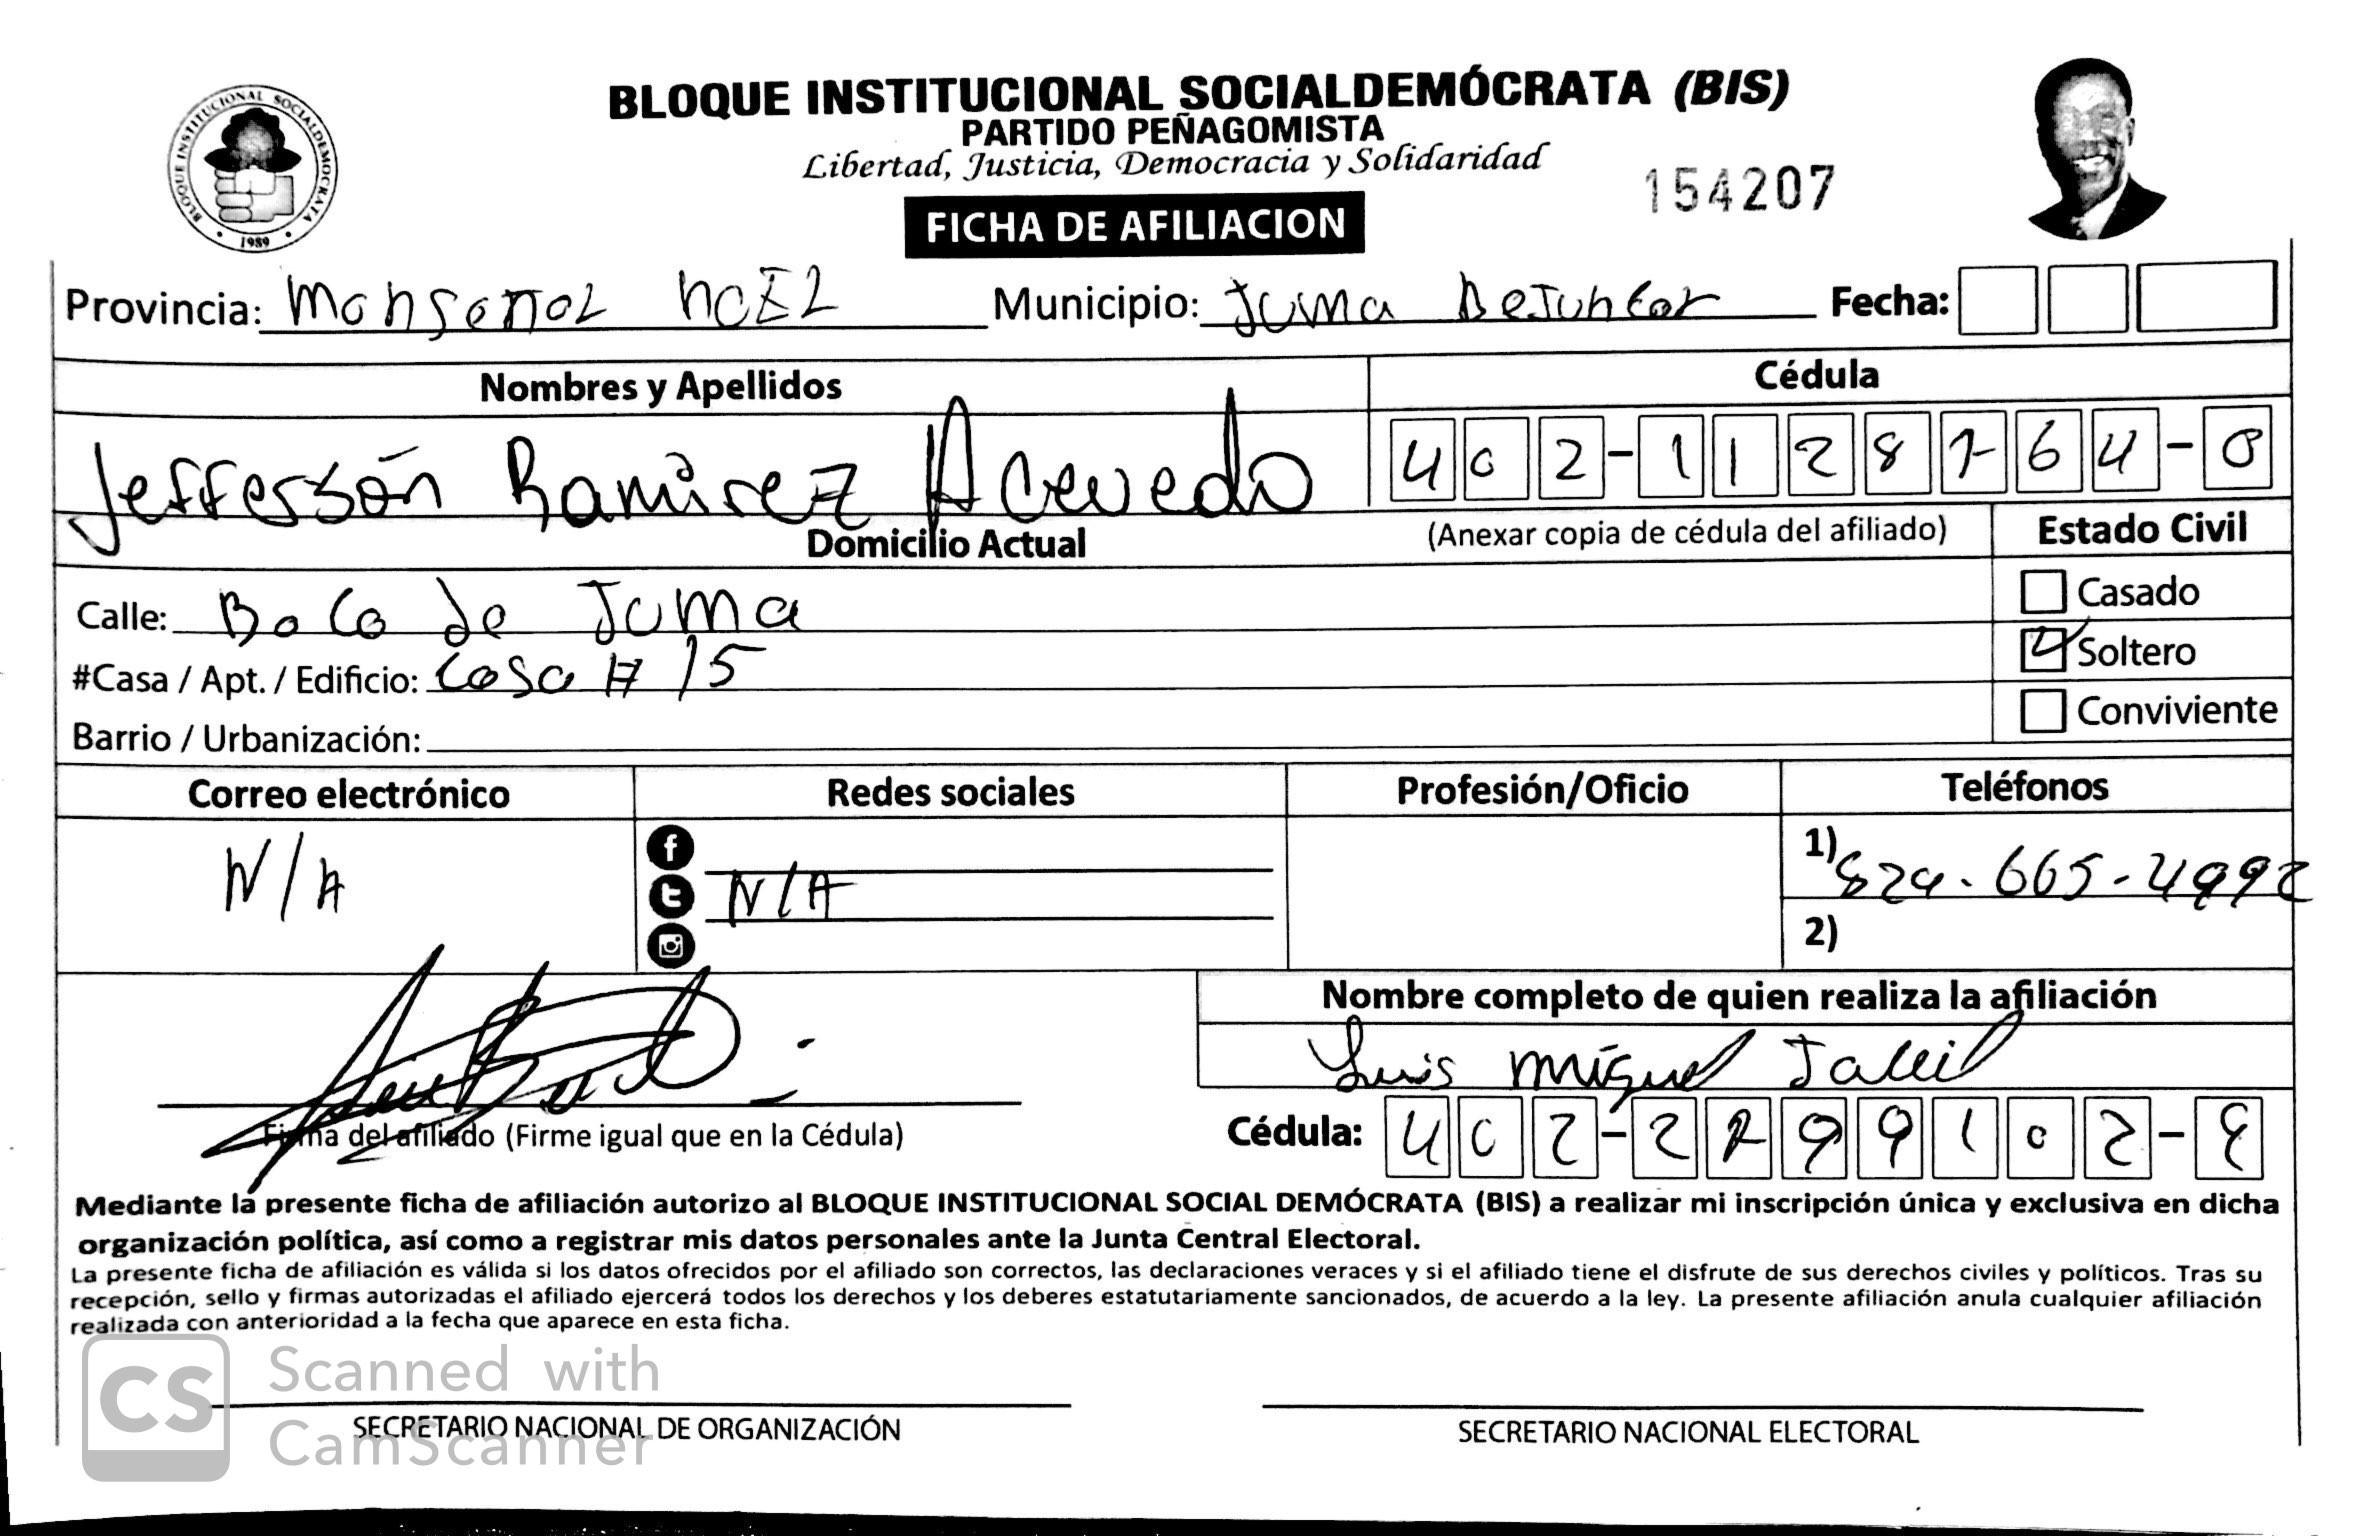 BLOQUE INSTITUCIONAL SOCIALDEMÓCRATA (BIS)
PARTIDO PEÑAGOMISTA
Libertad, Justicia, Democracia y Solidaridad
BLOQUE INSTITUCIONAL SOCIALDEMOCRATA
1989
154207
FICHA DE AFILIACION
Provincia: Monseñor NOEL Municipio: Juma Bejucal Fecha:
Nombres y Apellidos Cédula
Jefferson Ramirez Acevedo 402-1128764-0
Domicilio Actual (Anexar copia de cédula del afiliado) Estado Civil
Calle: Boca de Juma Casado
#Casa / Apt. / Edificio: Casa # 15 Soltero
Barrio / Urbanización: Conviviente
Correo electrónico Redes sociales Profesión/Oficio Teléfonos
N/A N/A 1) 829-665-4992
2)
Nombre completo de quien realiza la afiliación
Luis Miguel
Firma del afiliado (Firme igual que en la Cédula) Cédula: 402-2799102-9
Mediante la presente ficha de afiliación autorizo al BLOQUE INSTITUCIONAL SOCIAL DEMÓCRATA (BIS) a realizar mi inscripción única y exclusiva en dicha
organización política, así como a registrar mis datos personales ante la Junta Central Electoral.
La presente ficha de afiliación es válida si los datos ofrecidos por el afiliado son correctos, las declaraciones veraces y si el afiliado tiene el disfrute de sus derechos civiles y políticos. Tras su
recepción, sello y firmas autorizadas el afiliado ejercerá todos los derechos y los deberes estatutariamente sancionados, de acuerdo a la ley. La presente afiliación anula cualquier afiliación
realizada con anterioridad a la fecha que aparece en esta ficha.
CS Scanned with
CamScanner
SECRETARIO NACIONAL DE ORGANIZACIÓN SECRETARIO NACIONAL ELECTORAL